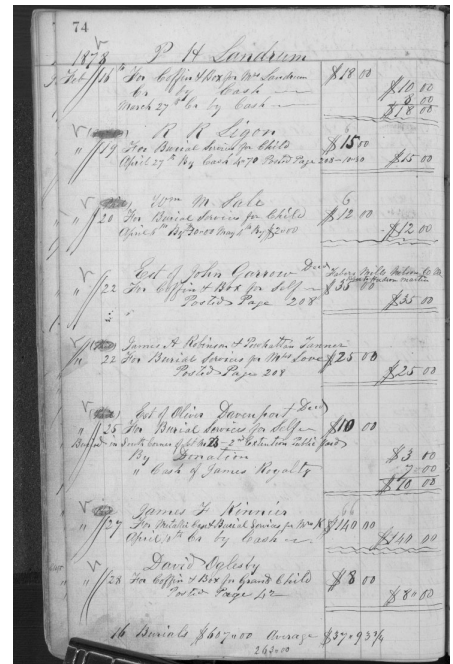 74
1878 P H Landrum
Feb 16 For Coffin & Box for Mrs Landrum $18 00
Cr by Cash $10 00
March 27th Cr by Cash 8 00
$18 00
R R Ligon
" 19 For Burial Services for Child $15 00
April 27th By Cash 4.70 Posted Page 208 - 10.30 $15 00
Wm M. Sale
" 20 For Burial Services for Child $12 00
April By $10.00 May By $2.00 $12 00
Est of John Garrow Decd
" 22 For Coffin & Box for Self $35 00
Posted Page 208 $35 00
James A Robinson & Powhattan Tanner
" 22 For Burial Services for Mrs Love $25 00
Posted Page 208 $25 00
Est of Oliver Davenport Decd
" 25 For Burial Services for Self $10 00
Buried in South Corner of Lot No 2nd Extention Public Yard
By Donation $3 00
" Cash of James Royalty 7 00
$10 00
James F Kinnier
" 27 For Metallic Case & Burial Services for Mrs K $140 00
April Cr by Cash $140 00
David Oglesby
" 28 For Coffin & Box for Grand Child $8 00
Posted Page 42 $8 00
16 Burials $607.00 Average $37.93 3/4
263.00